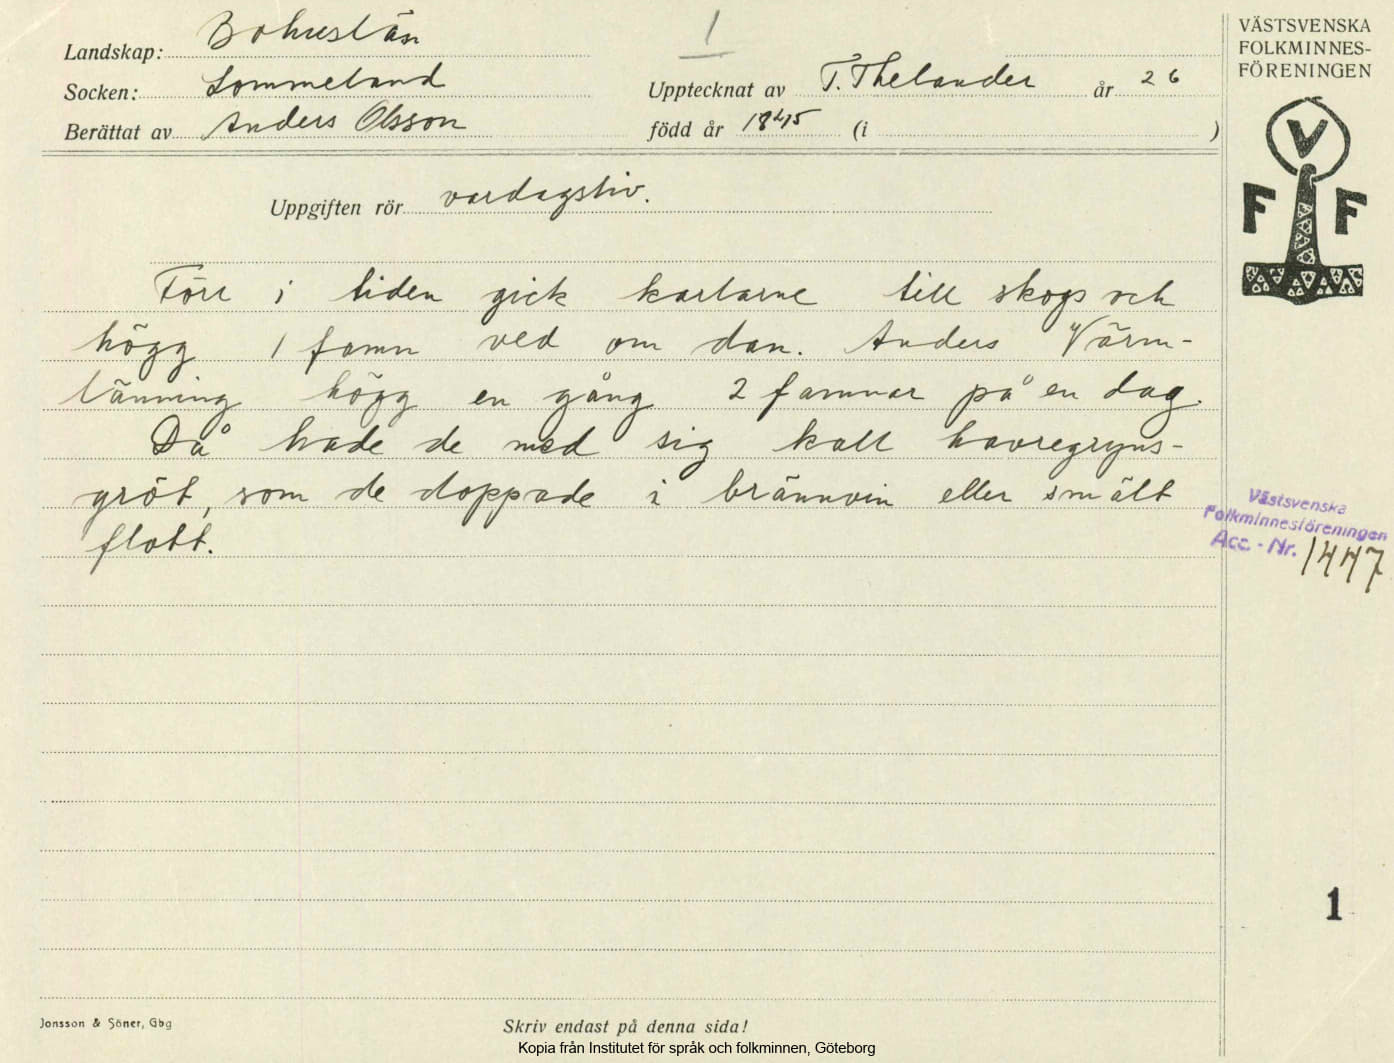 1
Landskap: Bohuslän
Socken: Lommeland
Upptecknat av T. Thelander år 26
Berättat av Anders Olsson född år 1845 (i )
Uppgiften rör vardagsliv.
Förr i tiden gick karlarne till skogs och
högg 1 famn ved om dan. Anders Värm-
länning högg en gång 2 famnar på en dag.
Då hade de med sig kall havregryns-
gröt, som de doppade i brännvin eller smält
flott.
VÄSTSVENSKA
FOLKMINNES-
FÖRENINGEN
V
F F
Västsvenska
Folkminnesföreningen
Acc. - Nr. 1447
1
Jonsson & Söner, Gbg
Skriv endast på denna sida!
Kopia från Institutet för språk och folkminnen, Göteborg